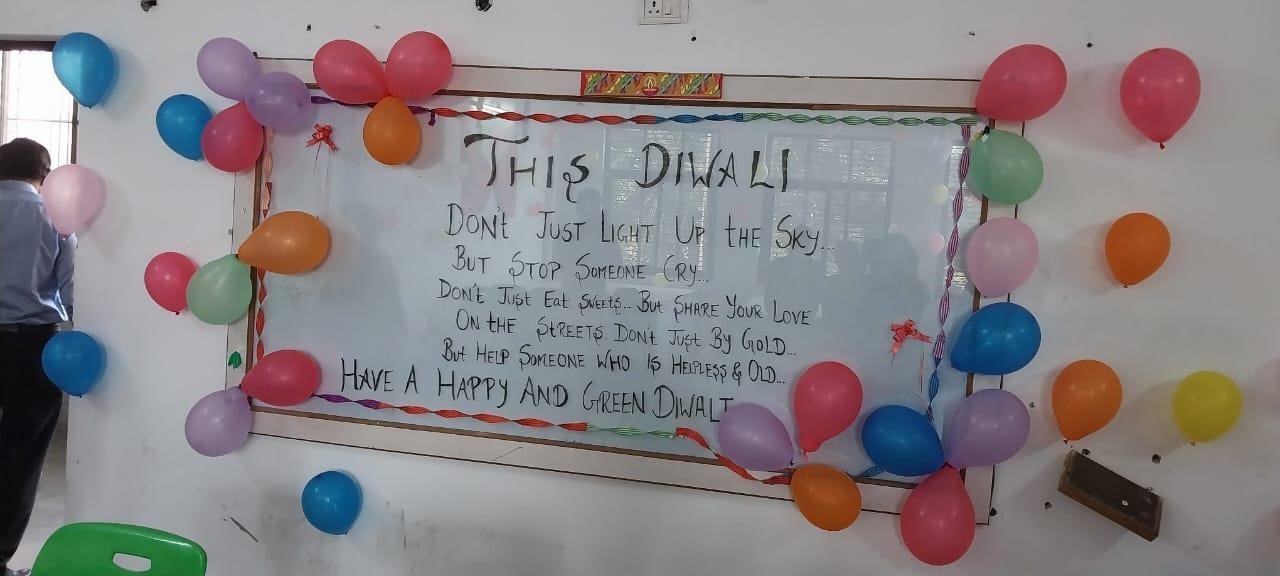 THIS DIWALI
DON't JUST LIGHT UP tHE SKY...
BUT STOP SOMEONE CRY...
DON't JUST EAt SWEEtS... BUt SHARE YOUR LOVE
ON tHE StREEtS DON't JUST BY GOLD...
BUt HELP SOMEONE WHO IS HELPLESS & OLD...
HAVE A HAPPY AND GREEN DIWALI